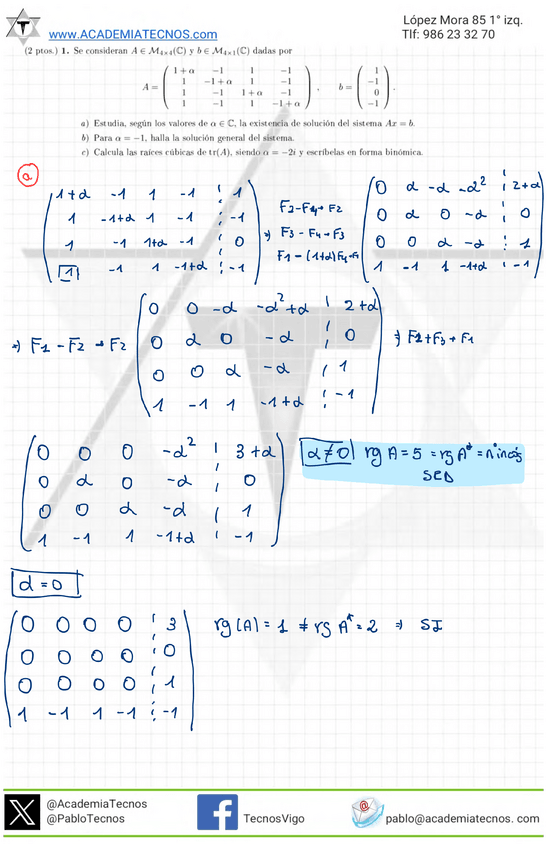 López Mora 85 1° izq.
www.ACADEMIATECNOS.com
Tlf: 986 23 32 70
(2 ptos.) 1. Se consideran A ∈ M₄ₓ₄(ℂ) y b ∈ M₄ₓ₁(ℂ) dadas por
1+α −1 1 −1
1 −1+α 1 −1
1 −1 1+α −1
1 −1 1 −1+α
A =
, b =
1
−1
0
−1
.
a) Estudia, según los valores de α ∈ ℂ, la existencia de solución del sistema Ax = b.
b) Para α = −1, halla la solución general del sistema.
c) Calcula las raíces cúbicas de tr(A), siendo α = −2i y escríbelas en forma binómica.
a
1+α -1 1 -1 ¦ 1
1 -1+α 1 -1 ¦ -1
1 -1 1+α -1 ¦ 0
1 -1 1 -1+α ¦ -1
F2-F4→F2
⇒ F3-F4→F3
F1-(1+α)F4→F1
0 α -α -α² ¦ 2+α
0 α 0 -α ¦ 0
0 0 α -α ¦ 1
1 -1 1 -1+α ¦ -1
⇒ F1-F2→F2
0 0 -α -α²+α ¦ 2+α
0 α 0 -α ¦ 0
0 0 α -α ¦ 1
1 -1 1 -1+α ¦ -1
⇒ F1+F3→F1
0 0 0 -α² ¦ 3+α
0 α 0 -α ¦ 0
0 0 α -α ¦ 1
1 -1 1 -1+α ¦ -1
α≠0 rg A = 5 = rg A* = nºincógs
SCD
α = 0
0 0 0 0 ¦ 3
0 0 0 0 ¦ 0
0 0 0 0 ¦ 1
1 -1 1 -1 ¦ -1
rg(A) = 1 ≠ rg A* = 2 ⇒ SI
@AcademiaTecnos
@PabloTecnos
TecnosVigo
pablo@academiatecnos. com